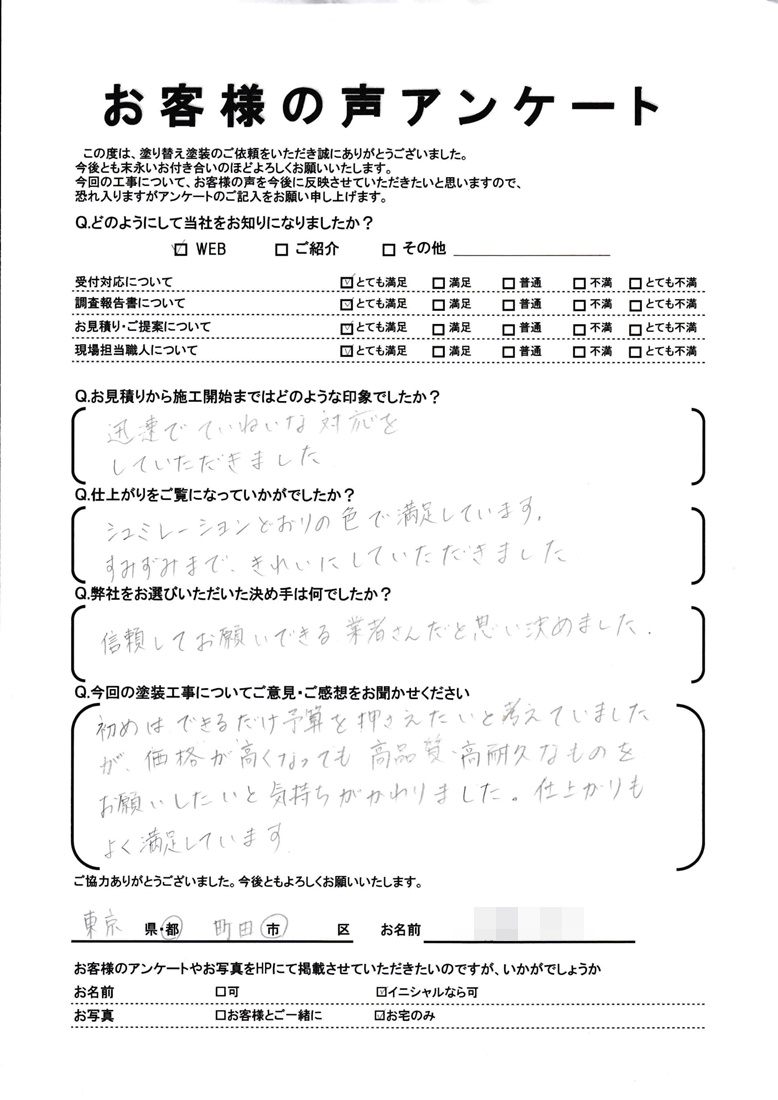 お客様の声アンケート
この度は、塗り替え塗装のご依頼をいただき誠にありがとうございました。
今後とも末永いお付き合いのほどよろしくお願いいたします。
今回の工事について、お客様の声を今後に反映させていただきたいと思いますので、
恐れ入りますがアンケートのご記入をお願い申し上げます。
Q.どのようにして当社をお知りになりましたか？
☑ WEB □ ご紹介 □ その他
受付対応について ☑とても満足 □満足 □普通 □不満 □とても不満
調査報告書について ☑とても満足 □満足 □普通 □不満 □とても不満
お見積り・ご提案について ☑とても満足 □満足 □普通 □不満 □とても不満
現場担当職人について ☑とても満足 □満足 □普通 □不満 □とても不満
Q.お見積りから施工開始まではどのような印象でしたか？
迅速で ていねいな 対応を
していただきました
Q.仕上がりをご覧になっていかがでしたか？
シュミレーションどおりの色で満足しています。
すみずみまで、きれいにしていただきました
Q.弊社をお選びいただいた決め手は何でしたか？
信頼してお願いできる業者さんだと思い決めました。
Q.今回の塗装工事についてご意見・ご感想をお聞かせください
初めは できるだけ予算を押さえたいと考えていました
が、価格が高くなっても 高品質・高耐久なものを
お願いしたいと気持ちがかわりました。仕上がりも
よく満足しています
ご協力ありがとうございました。今後ともよろしくお願いいたします。
東京 県・都 町田 市 区 お名前
お客様のアンケートやお写真をHPにて掲載させていただきたいのですが、いかがでしょうか
お名前 □可 ☑イニシャルなら可
お写真 □お客様とご一緒に ☑お宅のみ